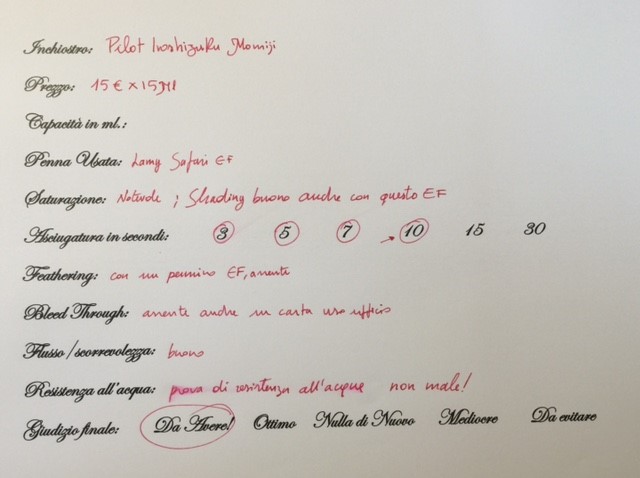 Inchiostro: Pilot Iroshizuku Momiji
Prezzo: 15 € x 15 Ml
Capacità in ml.:
Penna Usata: Lamy Safari EF
Saturazione: Notevole ; Shading buono anche con questo EF
Asciugatura in secondi: 3 5 7 → 10 15 30
Feathering: con un pennino EF, assente
Bleed Through: assente anche in carta uso ufficio
Flusso / scorrevolezza: buono
Resistenza all'acqua: prova di resistenza all'acqua non male!
Giudizio finale: Da Avere! Ottimo Nulla di Nuovo Mediocre Da evitare